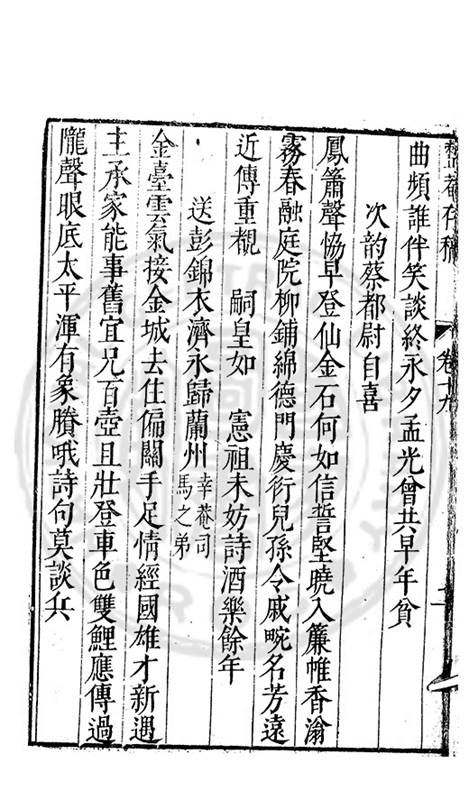 整菴存稿 卷十九
曲頻誰伴笑談終永夕孟光曾共早年貧
次韵蔡都尉自喜
鳳簫聲恊早登仙金石何如信誓堅曉入簾帷香滃
霧春融庭院柳鋪綿德門慶衍兒孫令戚畹名芳遠
近傳重覩 嗣皇如 憲祖未妨詩酒樂餘年
送彭錦衣濟永歸蘭州幸菴司馬之弟
金臺雲氣接金城去住偏關手足情經國雄才新遇
主承家能事舊宜兄百壺且壯登車色雙鯉應傳過
隴聲眼底太平渾有象賸哦詩句莫談兵